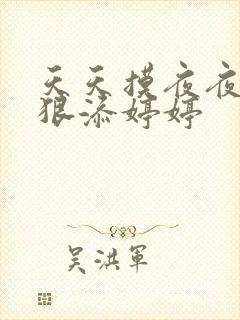 天天摸夜夜
狠添婷婷
吴洪军